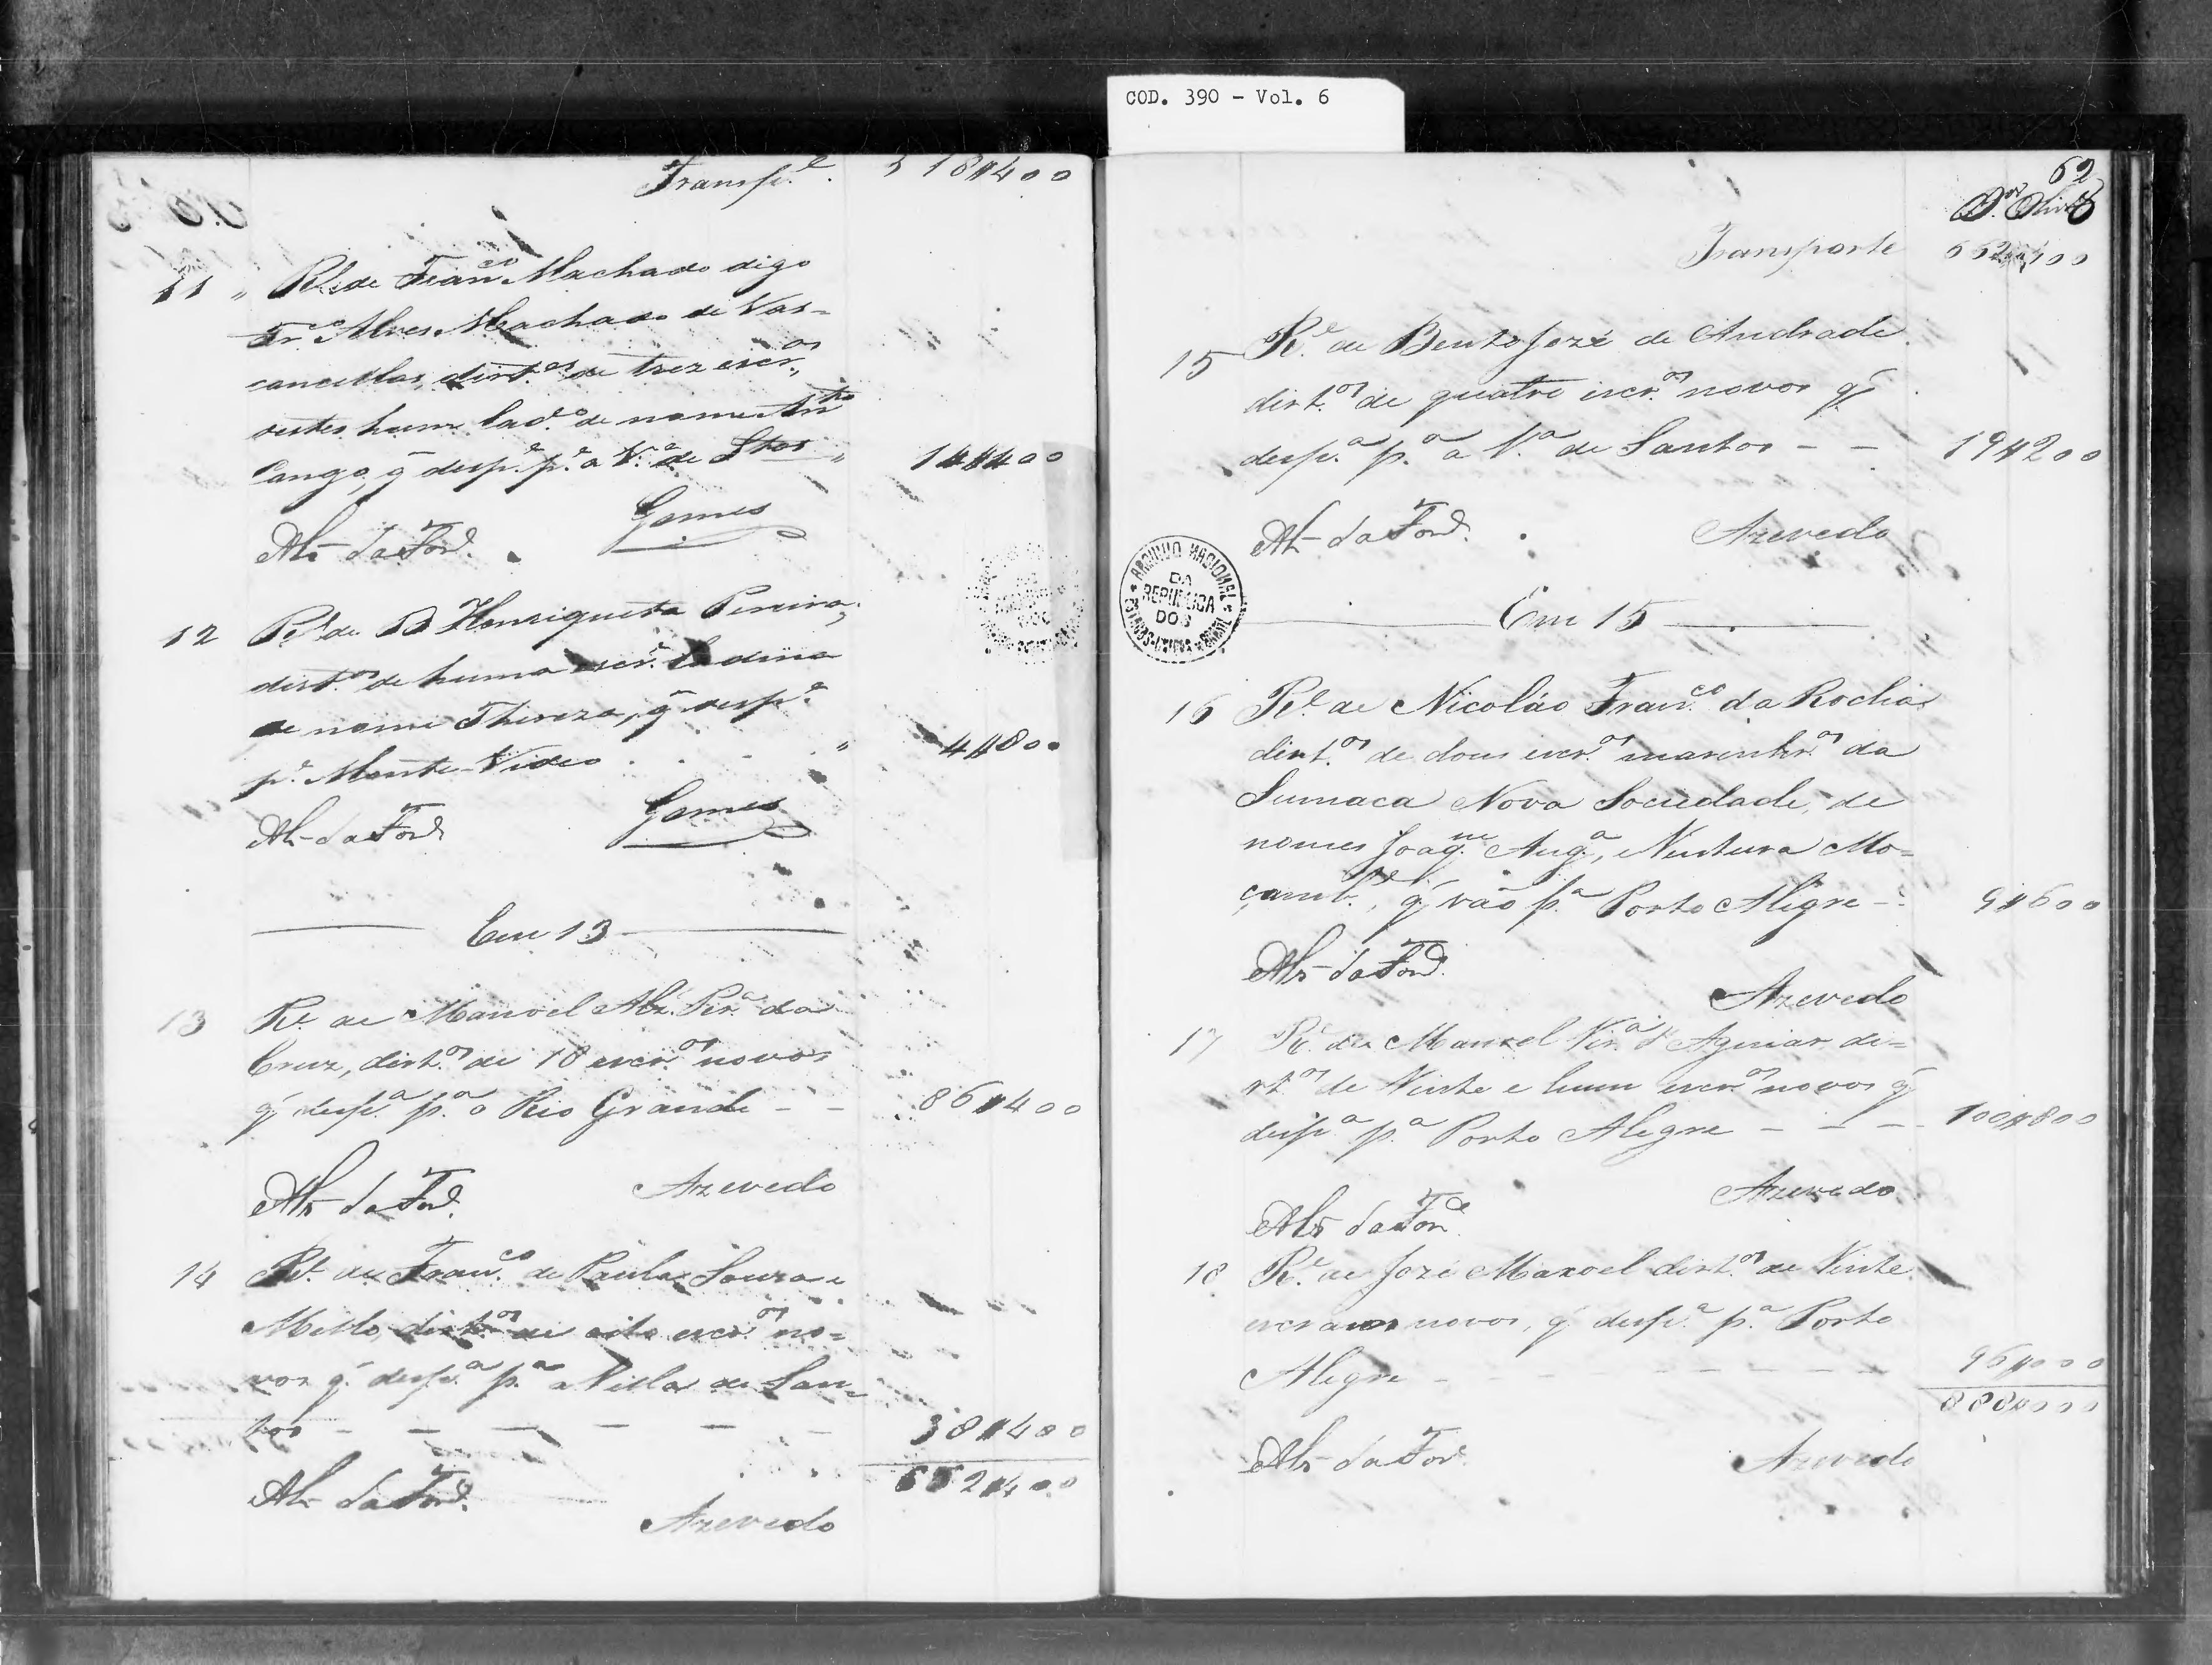 COD. 390 - Vol. 6
Transp.e 518$400
11 " R.e de Fran.co Machado digo
Fr.co Alves Machado de Vas-
concellos, dirt.os de trez escr.os,
sestes hum lad.o de nome Ant.o
Cango, q̃ desp.a p.a a V.a de S.tos " 14$400
Alz da Fon.ca Gomes
12 R.e de D. Henriqueta Pereira,
dirt.os de huma escr.a Ladina
de nome Thereza, q̃ desp.a
p.a Monte-Video . . . " 4$800
Alz da Fon.ca Gomes
Em 13
13 R.e de Manoel Alz. Per.a da
Cruz, dirt.os de 18 escr.os novos
q̃ desp.a p.a o Rio Grande - - 86$400
Alz da Fon.ca Azevedo
14 R.e de Fran.co de Paula Souza e
Mello, dirt.os de oito escr.os no-
vos q̃ desp.a p.a a Villa de San-
tos - - - - - - 38$400
662$400
Alz da Fon.ca
Azevedo
62
Transporte 662$400
15 R.e de Bento Jozé de Andrade
dirt.os de quatro escr.os novos q̃
desp.a p.a a V.a de Santos - - 19$200
Alz da Fon.ca Azevedo
ARCHIVO NACIONAL
DA
REPUBLICA
DOS
ESTADOS UNIDOS DO BRAZIL
Em 15
16 R.e de Nicoláo Fran.co da Rocha
dirt.os de dous escr.os marinhr.os da
Sumaca Nova Sociedade, de
nomes Joaq.m Ang.a, Ventura Mo-
çamb.e, q̃ vão p.a Porto Alegre - 9$600
Alz da Fon.ca
Azevedo
17 R.e de Manoel Vir.a d'Aguiar di-
rt.os de Vinte e hum escr.os novos q̃
desp.a p.a Porto Alegre - - - 100$800
Azevedo
Alz da Fon.ca
18 R.e de Jozé Manoel dirt.os de Vinte
escravos novos, q̃ desp.a p.a Porto
Alegre - - - - - - - 96$000
888$000
Alz da Fon.ca Azevedo